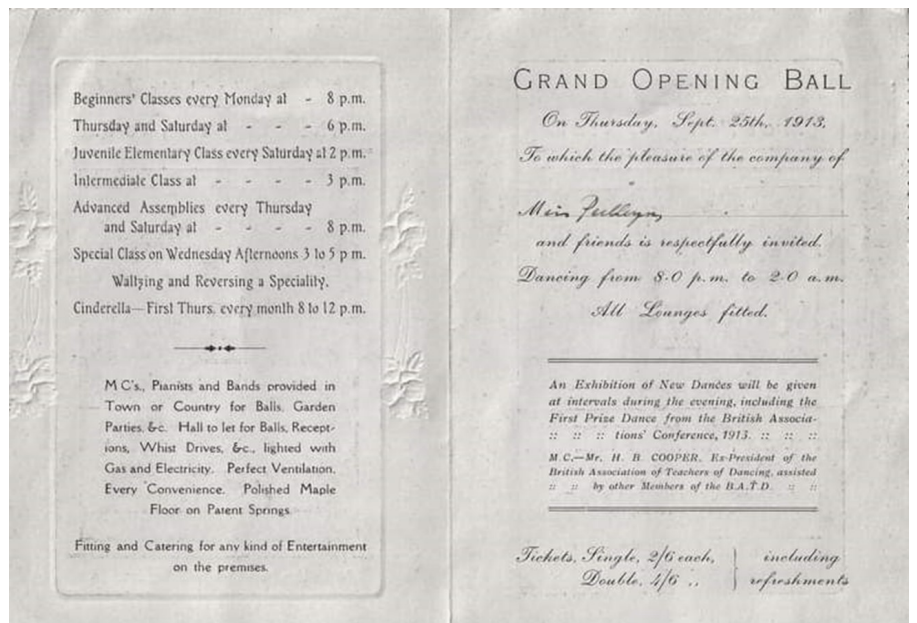 Beginners' Classes every Monday at - 8 p.m.
Thursday and Saturday at - - - 6 p.m.
Juvenile Elementary Class every Saturday at 2 p.m.
Intermediate Class at - - - - 3 p.m.
Advanced Assemblies every Thursday
and Saturday at - - - - 8 p.m.
Special Class on Wednesday Afternoons 3 to 5 p m.
Waltzing and Reversing a Speciality.
Cinderella—First Thurs. every month 8 to 12 p.m.
M C's., Pianists and Bands provided in
Town or Country for Balls, Garden
Parties, &c. Hall to let for Balls, Recept-
ions, Whist Drives, &c., lighted with
Gas and Electricity. Perfect Ventilation.
Every Convenience. Polished Maple
Floor on Patent Springs.
Fitting and Catering for any kind of Entertainment
on the premises.
GRAND OPENING BALL
On Thursday, Sept. 25th, 1913,
To which the pleasure of the company of
Miss
and friends is respectfully invited.
Dancing from 8-0 p.m. to 2-0 a.m.
All Lounges fitted.
An Exhibition of New Dances will be given
at intervals during the evening, including the
First Prize Dance from the British Associa-
:: :: :: tions' Conference, 1913. :: :: ::
M.C.—Mr. H. B. COOPER, Ex-President of the
British Association of Teachers of Dancing, assisted
:: :: by other Members of the B.A.T.D. :: ::
Tickets, Single, 2/6 each, } including
Double, 4/6 ,, } refreshments